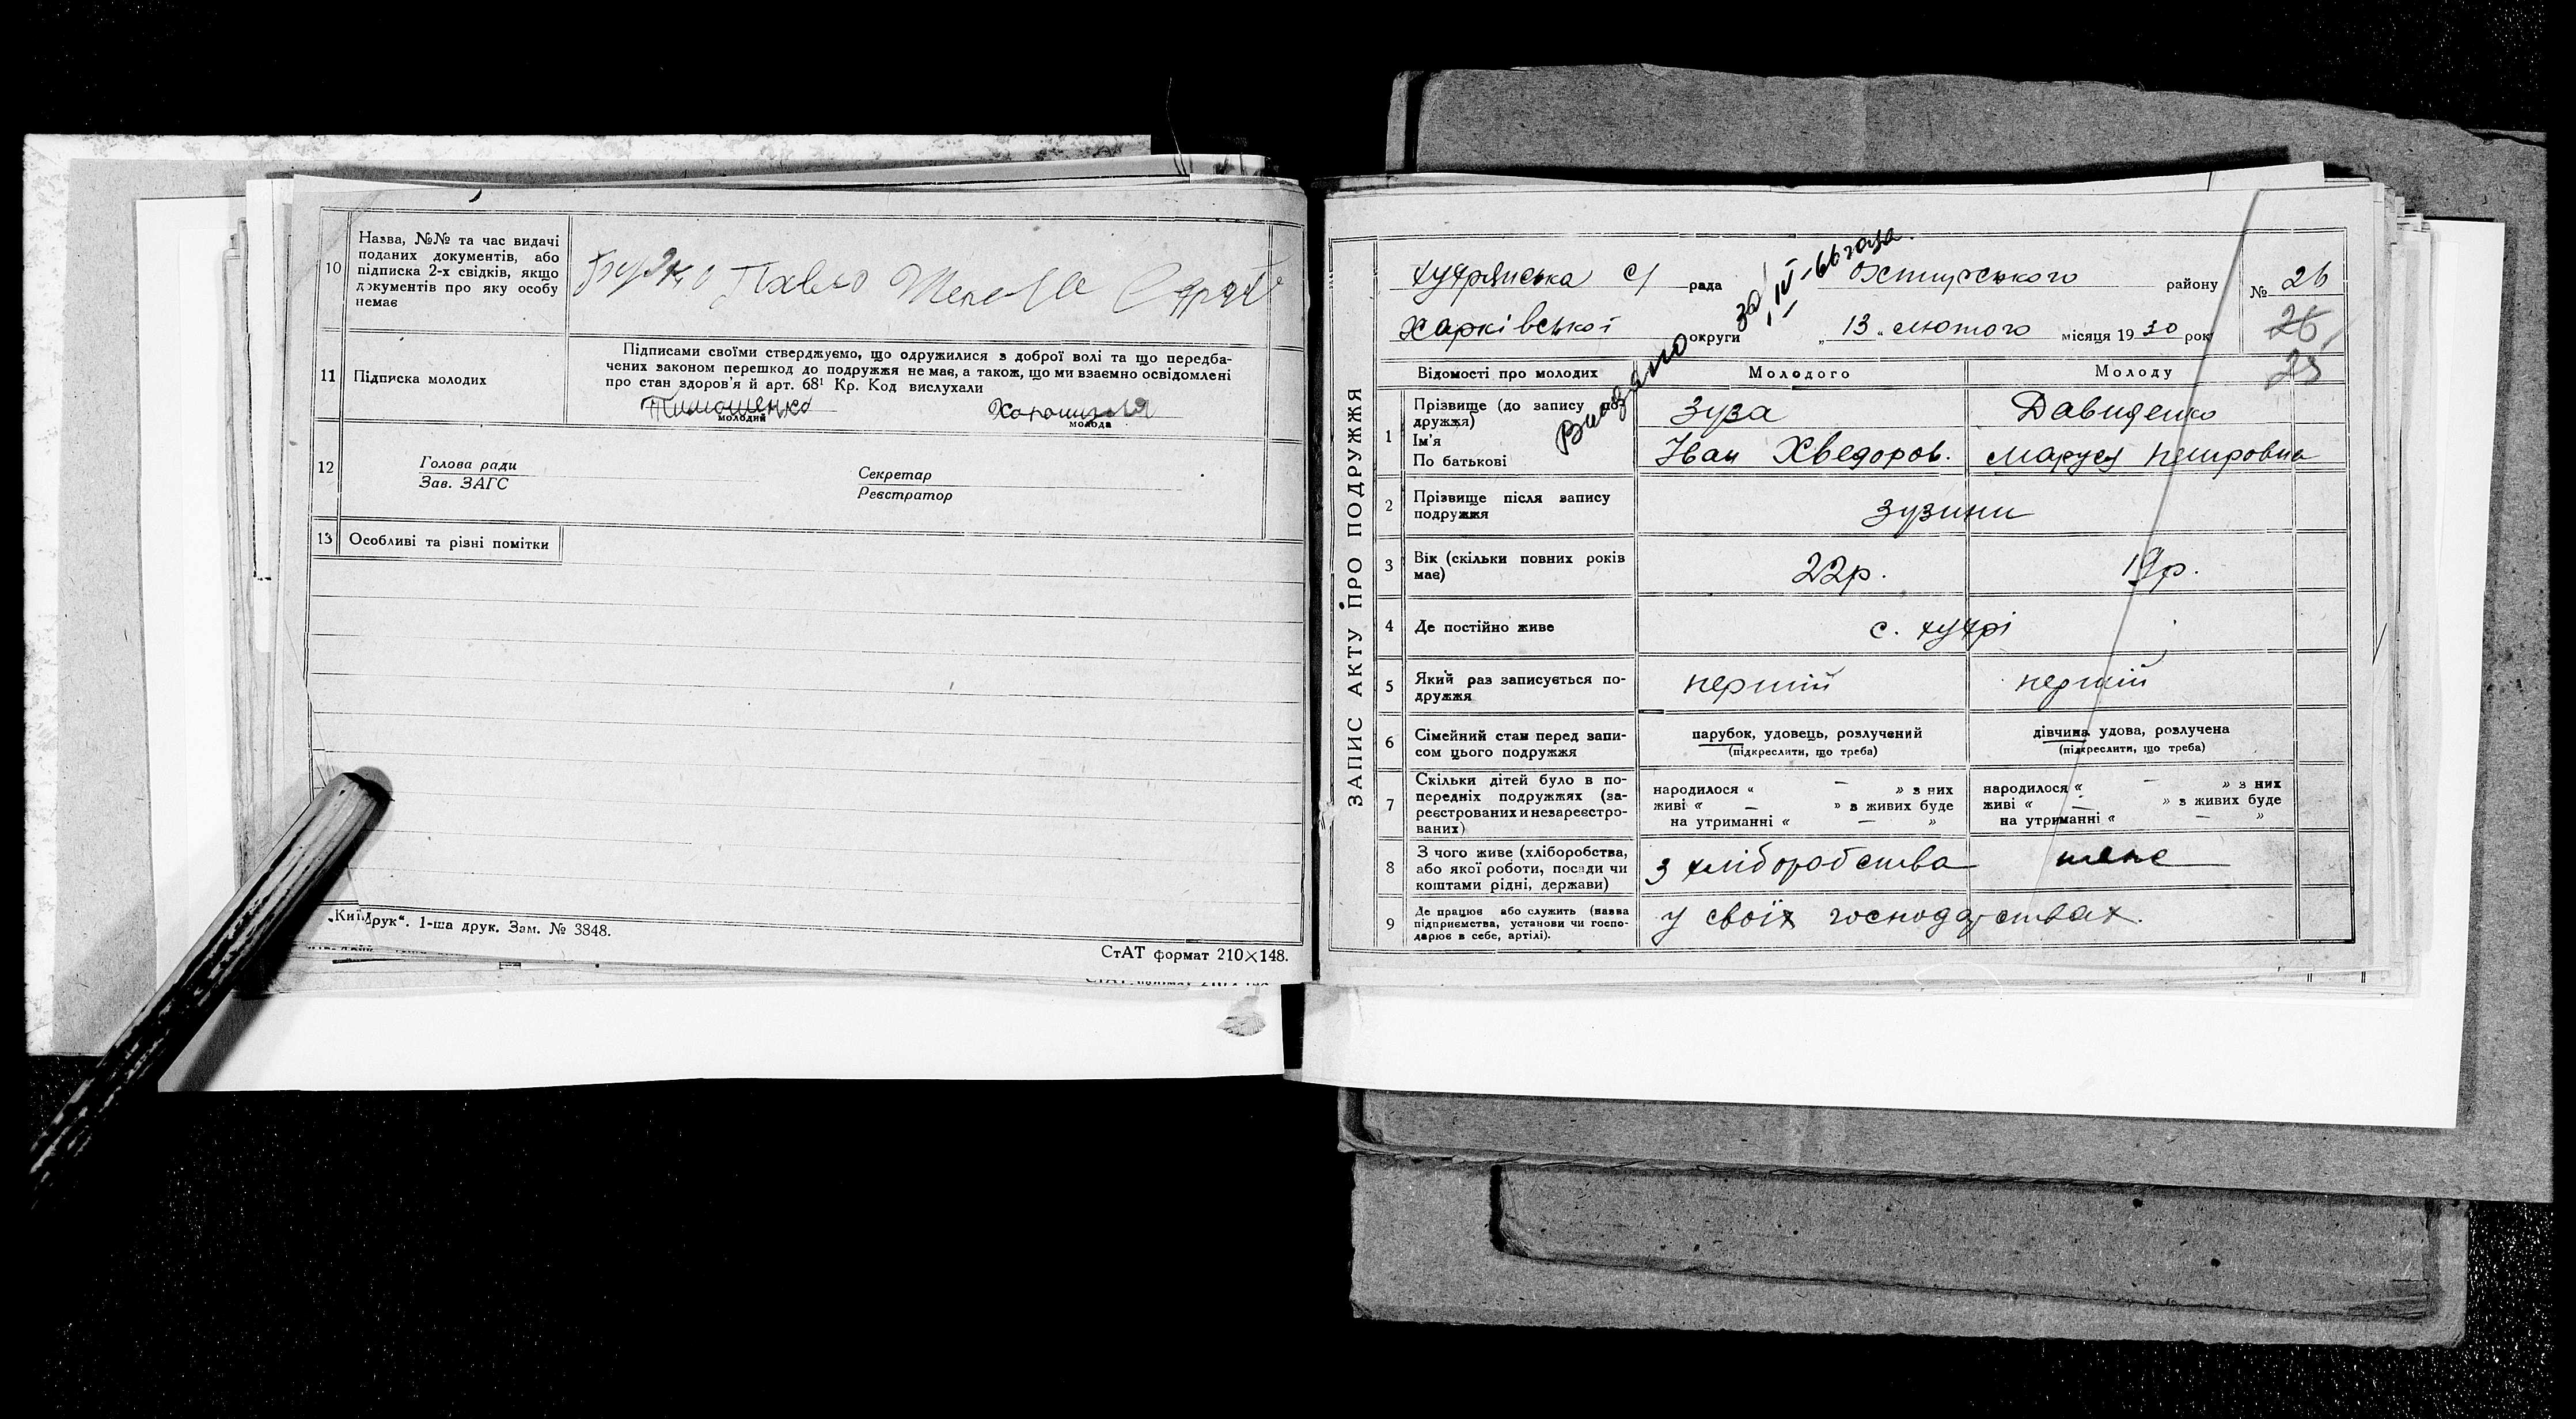 10 Назва, №№ та час видачі
поданих документів, або
підписка 2-х свідків, якщо
документів про яку особу
немає
Павло
11 Підписка молодих
Підписами своїми стверджуємо, що одружилися з доброї волі та що передба-
чених законом перешкод до подружжя не має, а також, що ми взаємно освідомлені
про стан здоров'я й арт. 68¹ Кр. Код вислухали
Тимошенко
молодий
молода
12 Голова ради
Зав. ЗАГС
Секретар
Реєстратор
13 Особливі та різні помітки
„Київдрук“. 1-ша друк. Зам. № 3848.
СтАТ формат 210×148.
ЗАПИС АКТУ ПРО ПОДРУЖЖЯ
Хухрянська с/ рада Охтирського району № 26
Харківської округи „13„ лютого місяця 1930 рок
26
Відомості про молодих Молодого Молоду
1 Прізвище (до запису по-
дружжя) Зуза Давиденко
Ім'я
По батькові Іван Хведоров. Маруся Петровна
2 Прізвище після запису
подружжя Зузини
3 Вік (скільки повних років
має) 22р. 19р.
4 Де постійно живе с. Хухрі
5 Який раз записується по-
дружжя перший перший
6 Сімейний стан перед запи-
сом цього подружжя
парубок, удовець, розлучений дівчина, удова, розлучена
(підкреслити, що треба) (підкреслити, що треба)
7 Скільки дітей було в по-
передніх подружжях (за-
реєстрованих и незареєстро-
ваних)
народилося « — » з них народилося « — » з них
живі « — » з живих буде живі « — » з живих буде
на утриманні « — » на утриманні « — »
8 З чого живе (хліборобства,
або якої роботи, посади чи
коштами рідні, держави) з хліборобства теж
9 Де працює або служить (назва
підприємства, установи чи госпо-
дарює в себе, артілі). у своїх господарствах.